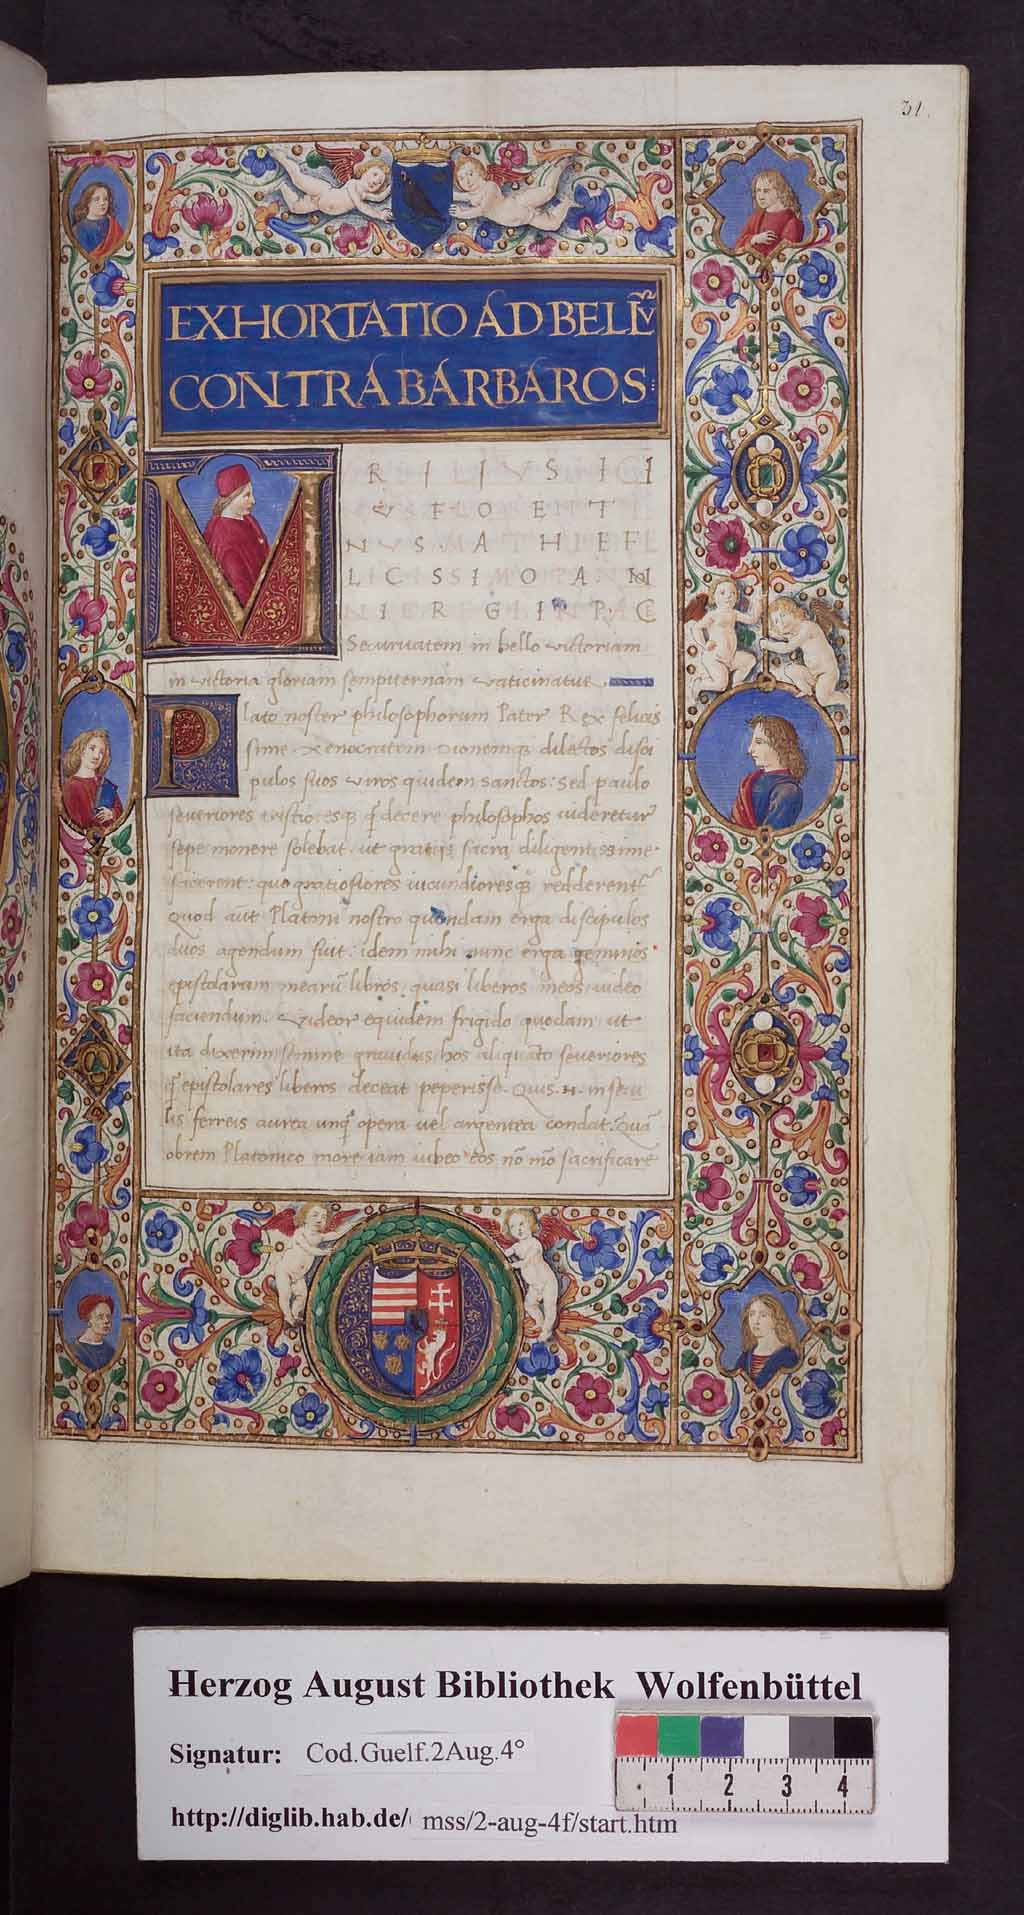 31.
EXHORTATIO AD BELLṼ
CONTRA BARBAROS
M
Securitatem in bello victoriam
in victoria gloriam sempiternam vaticinatur
Plato noster philosophorum Pater Rex felicis
sime Xenocratem Dionemq; dilectos disci
pulos suos viros quidem sanctos: Sed paulo
severiores tristioresq; ꝙ decere philosophos videretur
sepe monere solebat ut gratiis sacra diligentissime
facerent: quo gratiosiores iucundioresq; redderent̃
Quod aūt Platoni nostro quondam erga discipulos
duos agendum fuit: idem mihi nunc erga geminos
epistolarum mearū libros quasi liberos meos video
faciendum. Videor equidem frigido quodam ut
ita dixerim semine gravidus hos aliquāto severiores
ꝙ epistolares liberos deceat peperisse. Quis .n. in secu
lis ferreis aurea unꝙ opera vel argentea condat. Quā
obrem Platonico more iam iubeo eos nō mō sacrificare
Herzog August Bibliothek Wolfenbüttel
Signatur: Cod.Guelf.2Aug.4°
http://diglib.hab.de/ mss/2-aug-4f/start.htm
1 2 3 4